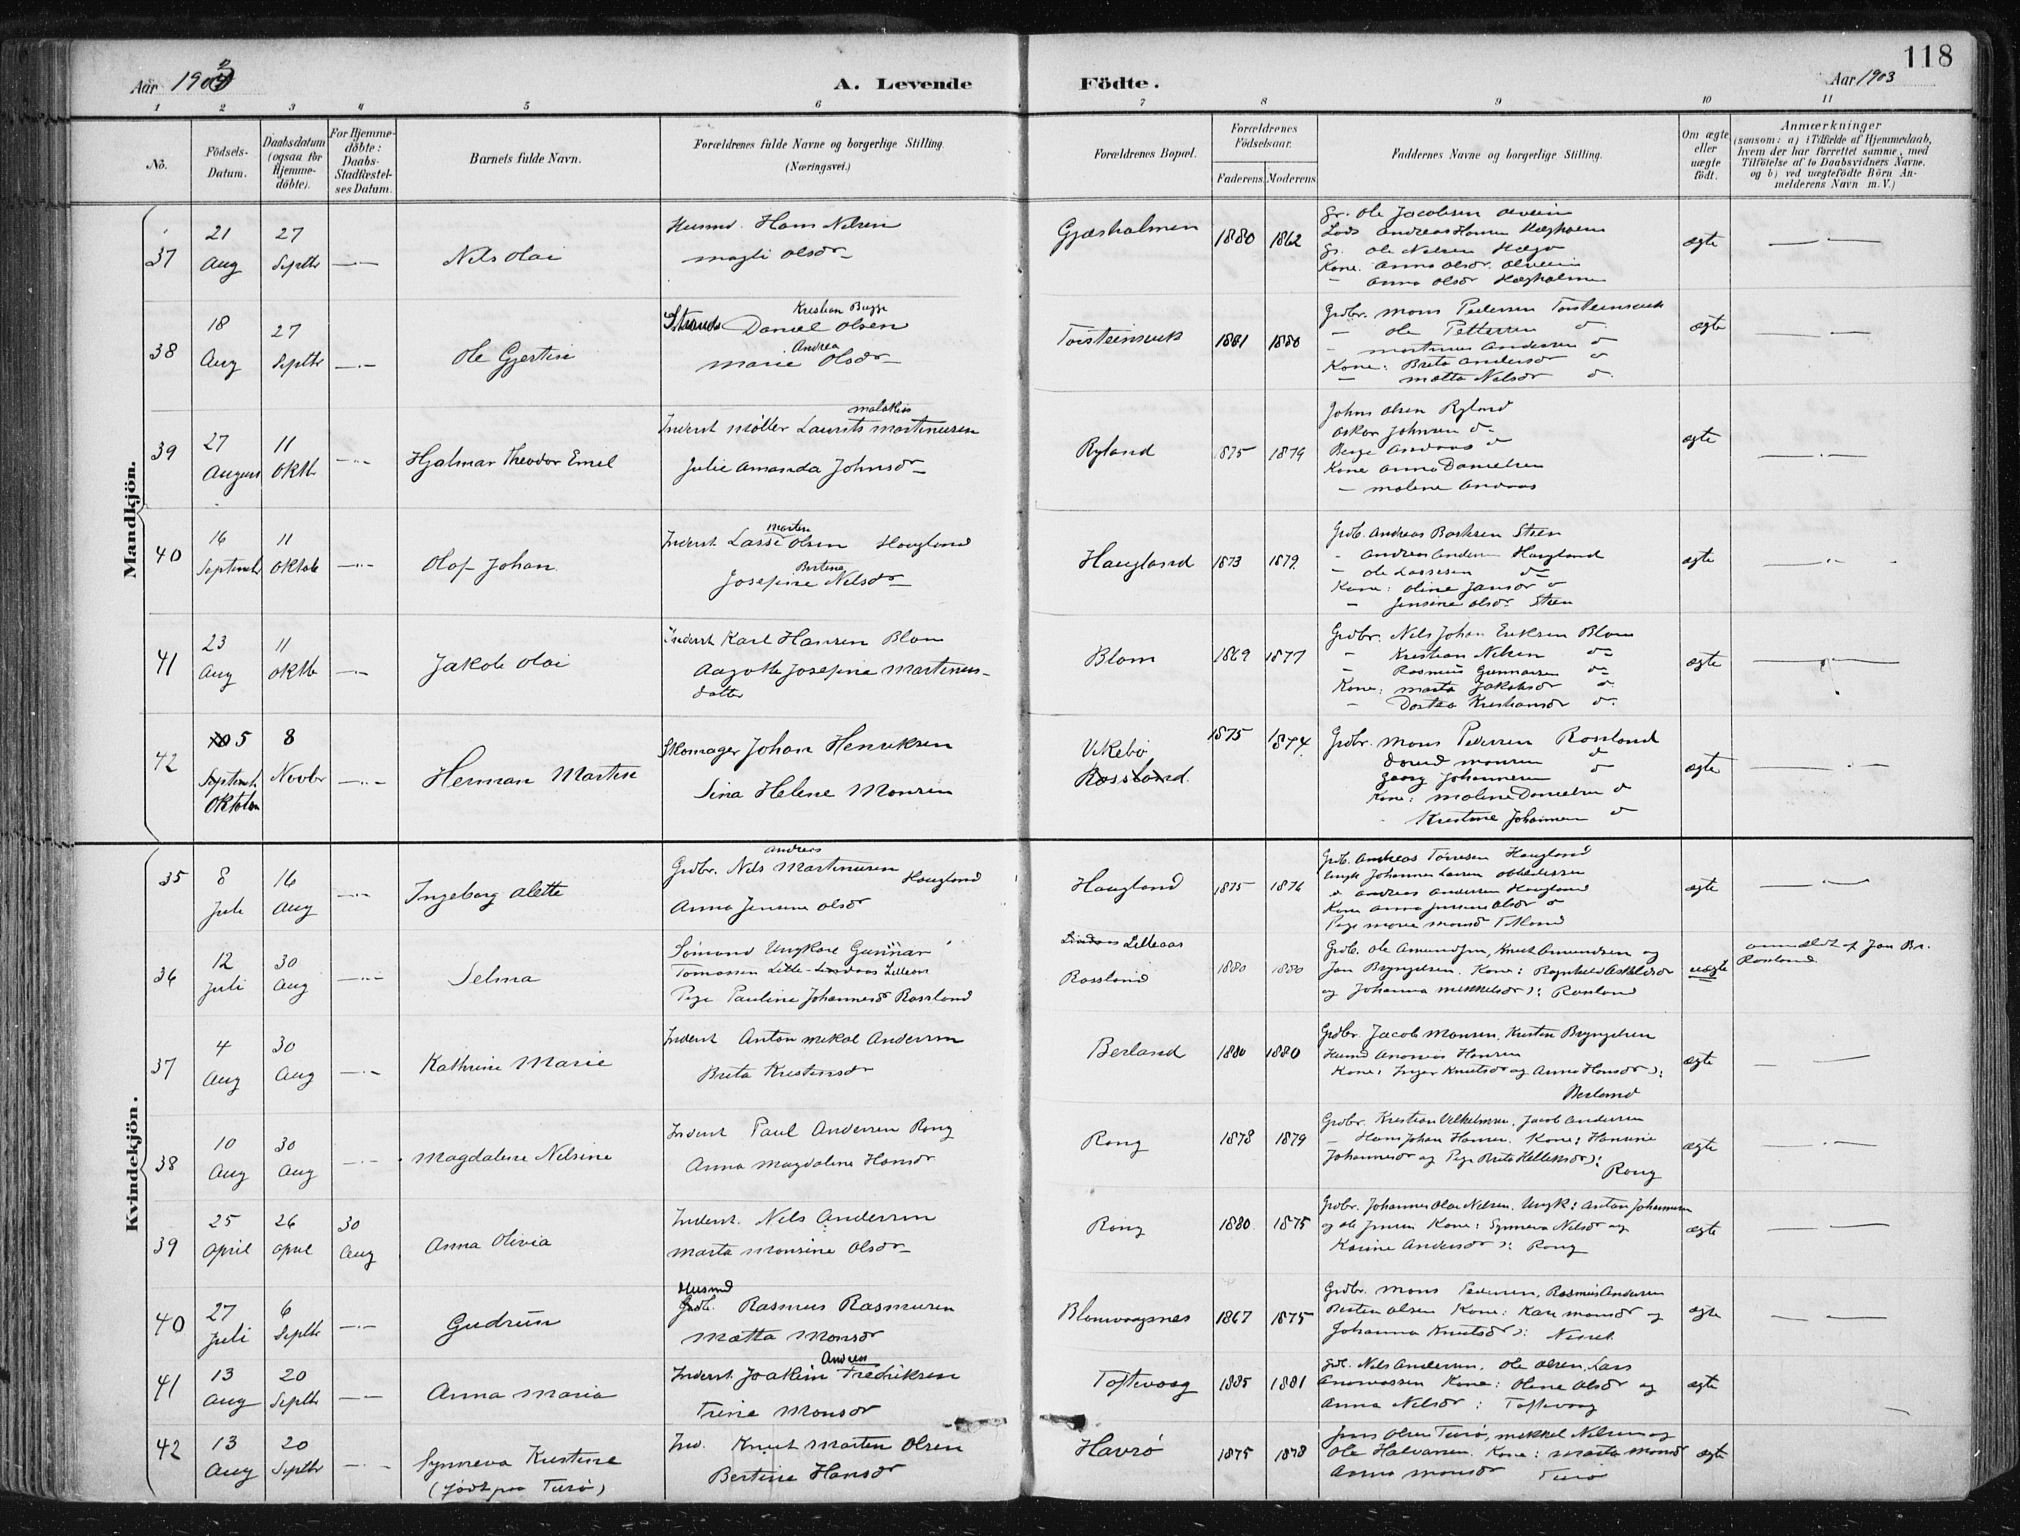 118
Aar 1903
A. Levende Födte.
Aar 1903
1 2 3 4 5 6 7 8 9 10 11
No.
Födsels-Datum.
Daabsdatum (ogsaa for Hjemme-döbte).
For Hjemme-döbte: Daabs-Stadfæstel-ses Datum.
Barnets fulde Navn.
Forældrenes fulde Navne og borgerlige Stilling. (Næringsvei.)
Forældrenes Bopæl.
Forældrenes Födselsaar.
Faderens Moderens
Faddernes Navne og borgerlige Stilling.
Om ægte eller uægte födt.
Anmærkninger
(saasom: a) i Tilfælde af Hjemmedaab, hvem der har forrettet samme, med Tilföielse af to Daabsvidners Navne. og b) ved uægtefödte Börn An-melderens Navn m. V.)
Mandkjön.
37 21 Aug 27 Septbr Nils Olai
Husmd. Hans Nilsen
Magli Olsdr
Gjæsholmen 1880 1862
Gr. Ole Jacobsen
Gr. Ole Nilsen
Kone. Anna Olsdr.
Anna Olsdr
ægte
38 18 Aug 27 Septbr Ole Gjertin
Kristian Bugge
Strands Daniel Olsen
Andrea
Marie Olsdr
Torsteinsvik 1881 1880
Grdbr. Mons Pedersen Torsteinsvik
Ole Pettersen do
Martinus Andersen do
Kone: Brita Andersdr do
Matta Nilsdr do
ægte
39 27 August 11 Oktb Hjalmar Theodor Emil
Malakias
Inderst Møller Laurits Martinusen
Julie Amanda Johnsdr
Ryland 1875 1879
Johns Olsen Ryland
Oskar Johnsen do
Kone Anna Danielsen
Malene
ægte
40 16 Septemb 11 Oktob Olaf Johan
Marten
Inderst. Lasse Olsen Haugland
Bertine
Josefine Nilsdr
Haugland 1873 1879
Grdb. Andreas Steen
Andreas Andersen Haugland
Ole Lassesen do
Kone: Oline Jansdr do
Jensine Olsdr Steen
ægte
41 23 Aug 11 Oktb Jakob Olai
Inderst Karl Hansen Blom
Aagothe Josefine Martinus-
datter
Blom 1869 1877
Grdbr. Nils Johan Eriksen Blom
Kristian Nilsen do
Rasmus Gunnarsen do
Kone: Marta Jakobsdr do
Dortea Kristiansdr do
ægte
42 5 Septemb. Oktober 8 Novbr Herman Martin
Skomager Johan Henriksen
Sina Helene Monsen
Vikebø
Rossland. 1875 1874
Grdbr. Mons Pedersen Rossland
David Monsen do
Georg Johannesen do
Kone: Malene Danielsen do
Kristine Johannesen do
ægte
Kvindekjön.
35 8 Juli 16 Aug Ingeborg Alette
Andreas
Grdbr. Nils Martinusen Haugland
Anna Jensine Olsdr
Haugland 1875 1876
Grdb. Andreas Tørresen Haugland
Ungk Johannes Larsen
Andreas Andersen Haugland
Kone Anna Jensine Olsdr do
Pige Marie Monsdr Titland
ægte
36 12 Juli 30 Aug Selma
Sømand Ungkarl Gunnar
Tomassen Lille-Lindaas Lilleaas
Pige Pauline Johannesdr Rossland
Lindaas Lilleaas
Rossland 1880 1880
Grdb. Ole Amundsen, Knut Amundsen og
Jan Bryngelsen. Kone: Ragnhild Askildsdr
og Johanna Mikkelsdr ): Rosland
uægte
anmeldt af Jan Br. Rosland
37 4 Aug 30 Aug Kathrine Marie
Inderst Anton Mikal Andersen
Brita Kristensdr
Berland 1880 1880
Grdbr Jacob Monsen, Kristen Bryngelsen
Husmd Ananias Hansen
Kone: Inger Knutsdr og Anna Hansdr ):
Berland
ægte
38 10 Aug 30 Aug Magdalene Nilsine
Inderst Paul Andersen Rong
Anna Magdalene Hansdr
Rong 1878 1879
Grdbr. Kristian Vilhelmsen, Jacob Andersen
Hans Johan Hansen. Kone: Hansine
Johannesdr og Pige Brita Helleksdr ):
Rong
ægte
39 25 April 26 April 30 Aug Anna Olivia
Inderst. Nils Andersen
Marta Monsine Olsdr
Rong 1880 1875
Grdbr. Johannes Olai Nilsen. Ungk: Anton Johannesen
og Ole Jensen Kone: Synneva Nilsdr og
Karine Andersdr ): Rong
ægte
40 27 Juli 6 Septbr Gudrun
Husmd
Grdb. Rasmus Rasmusen
Matta Monsdr
Blomvaagnes 1867 1875
Grdbr. Mons Pedersen, Rasmus Andersen
Besten Olsen Kone: Kari Monsdr og
Johanna Knutsdr ):
ægte
41 13 Aug 20 Septbr Anna Maria
Andreas
Inderst Joakim Fredriksen
Trine Monsdr
Toftevaag 1885 1881
Grdb. Nils Andersen. Ole Olsen, Lars
Andreassen Kone: Oline Olsdr og
Anna Nilsdr : Toftevaag
ægte
42 13 Aug 20 Septbr Synneva Kristine
(født paa Turø)
Ind. Knut Marten Olsen
Bertine Hansdr
Havrø 1875 1878
Jens Olsen Turø, Mikkel Nilsen og
Ole Halvarsen. Kone: Marta Monsdr
Anna Monsdr Turø
ægte